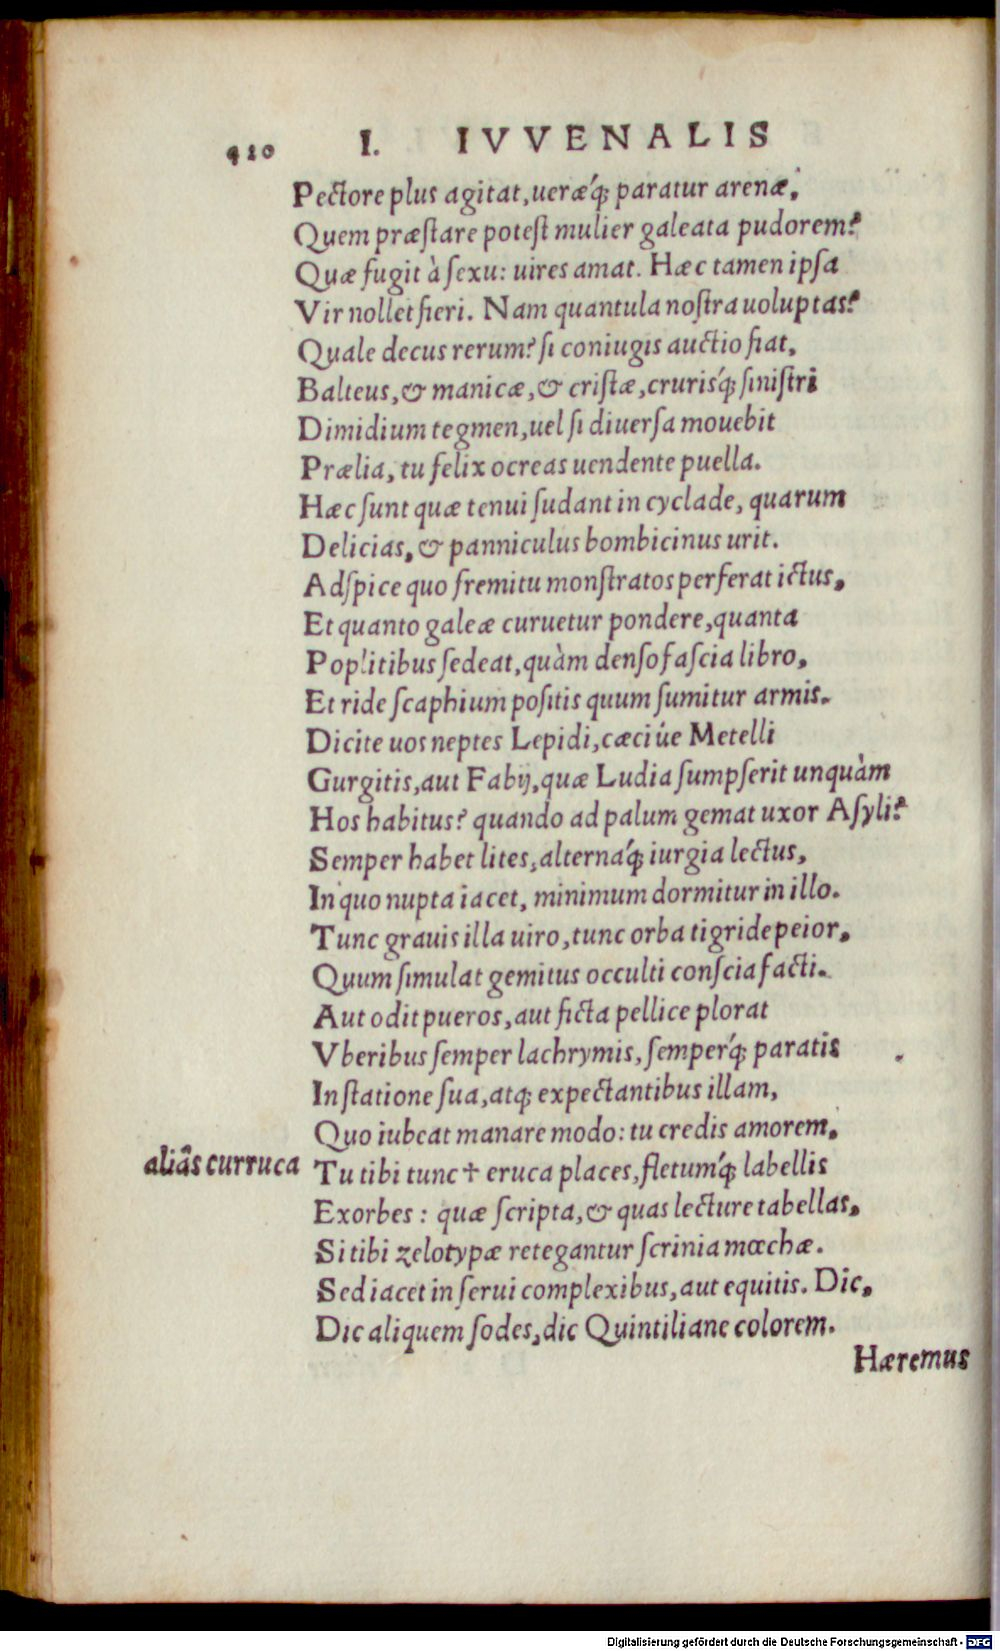 420 I. IVVENALIS
Pectore plus agitat, ueræq́; paratur arenæ.
Quem præstare potest mulier galeata pudorem?
Quæ fugit à sexu: uires amat. Hæc tamen ipsa
Vir nollet fieri. Nam quantula nostra uoluptas?
Quale decus rerum? si coniugis auctio fiat,
Balteus, & manicæ, & cristæ, crurisq́; sinistri
Dimidium tegmen, uel si diuersa mouebit
Prælia, tu felix ocreas uendente puella.
Hæc sunt quæ tenui sudant in cyclade, quarum
Delicias, & panniculus bombicinus urit.
Adspice quo fremitu monstratos perferat ictus,
Et quanto galeæ curuetur pondere, quanta
Poplitibus sedeat, quàm denso fascia libro,
Et ride scaphium positis quum sumitur armis.
Dicite uos neptes Lepidi, cæci úe Metelli
Gurgitis, aut Fabij, quæ Ludia sumpserit unquàm
Hos habitus? quando ad palum gemat uxor Asyli?
Semper habet lites, alternaq́; iurgia lectus,
In quo nupta iacet, minimum dormitur in illo.
Tunc grauis illa uiro, tunc orba tigride peior,
Quum simulat gemitus occulti conscia facti.
Aut odit pueros, aut ficta pellice plorat
Vberibus semper lachrymis, semperq́; paratis
In statione sua, atq; expectantibus illam,
Quo iubeat manare modo: tu credis amorem,
aliâs curruca Tu tibi tunc † eruca places, fletumq́; labellis
Exorbes: quæ scripta, & quas lecture tabellas,
Si tibi zelotypæ retegantur scrinia mœchæ.
Sed iacet in serui complexibus, aut equitis. Dic,
Dic aliquem sodes, dic Quintiliane colorem.
Hæremus
Digitalisierung gefördert durch die Deutsche Forschungsgemeinschaft - DFG